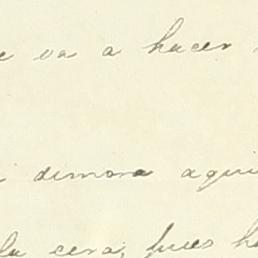 e va a hacer
dimora aqui
la cera, pues ha